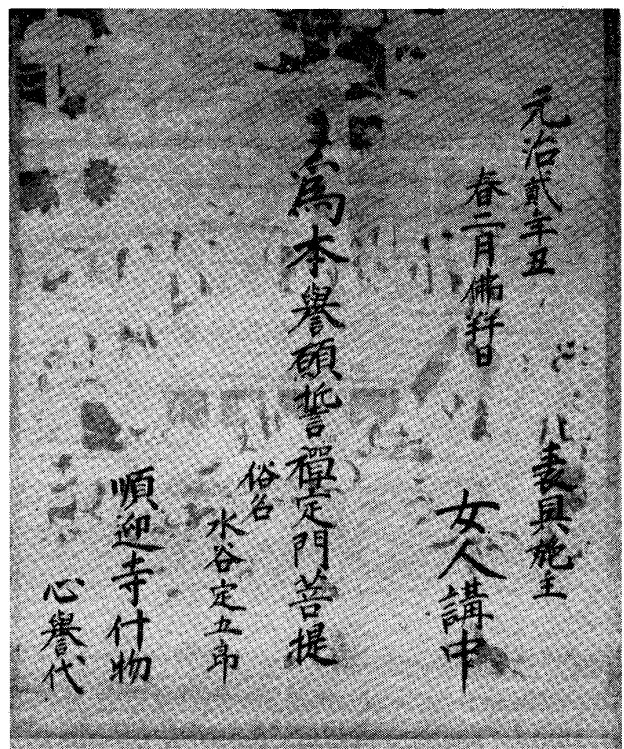 元治貳年丑
春二月佛歡日
表具施主
女人講中
為本譽願誓禪定門菩提
俗名
水谷定五郎
順迎寺什物
心譽代